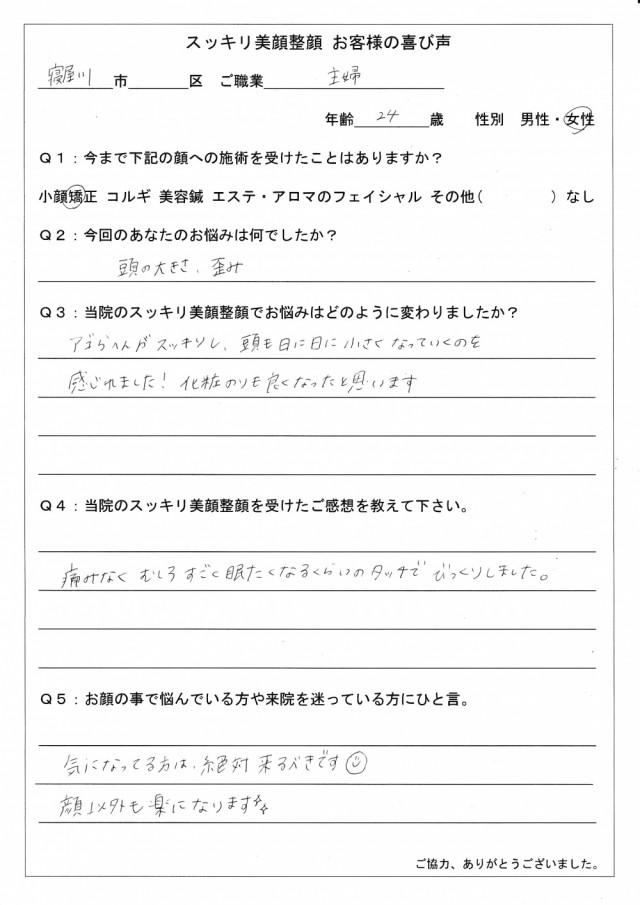 スッキリ美顔整顔 お客様の喜び声
寝屋川市　　　区 ご職業 主婦
年齢 24 歳 性別 男性・女性
Q1：今まで下記の顔への施術を受けたことはありますか？
小顔矯正 コルギ 美容鍼 エステ・アロマのフェイシャル その他(　　　　) なし
Q2：今回のあなたのお悩みは何でしたか？
頭の大きさ、歪み
Q3：当院のスッキリ美顔整顔でお悩みはどのように変わりましたか？
アゴらへんがスッキリし、頭も日に日に小さくなっていくのを
感じれました！化粧のりも良くなったと思います
Q4：当院のスッキリ美顔整顔を受けたご感想を教えて下さい。
痛みなく むしろ すごく眠たくなるくらいのタッチで びっくりしました。
Q5：お顔の事で悩んでいる方や来院を迷っている方にひと言。
気になってる方は、絶対来るべきです☺
顔以外も楽になります✨
ご協力、ありがとうございました。